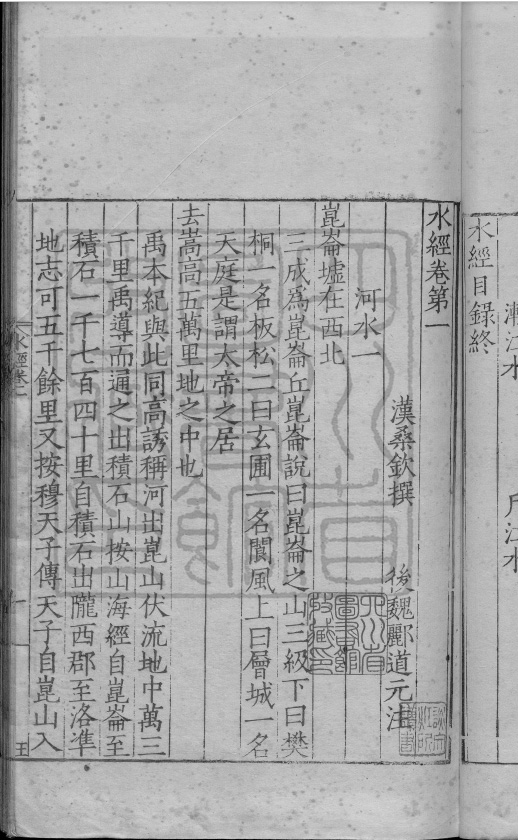 漸江水　斤江水
水經目録終
水經卷第一
漢桑欽撰　後魏酈道元注
河水一
崑崙墟在西北
三成爲崑崙丘崑崙說曰崑崙之山三級下曰樊
桐一名板松二曰玄圃一名閬風上曰層城一名
天庭是謂太帝之居
去嵩高五萬里地之中也
禹本紀與此同高誘稱河出崑山伏流地中萬三
千里禹導而通之出積石山按山海經自崑崙至
積石一千七百四十里自積石出隴西郡至洛準
地志可五千餘里又按穆天子傳天子自崑山入
水經卷一